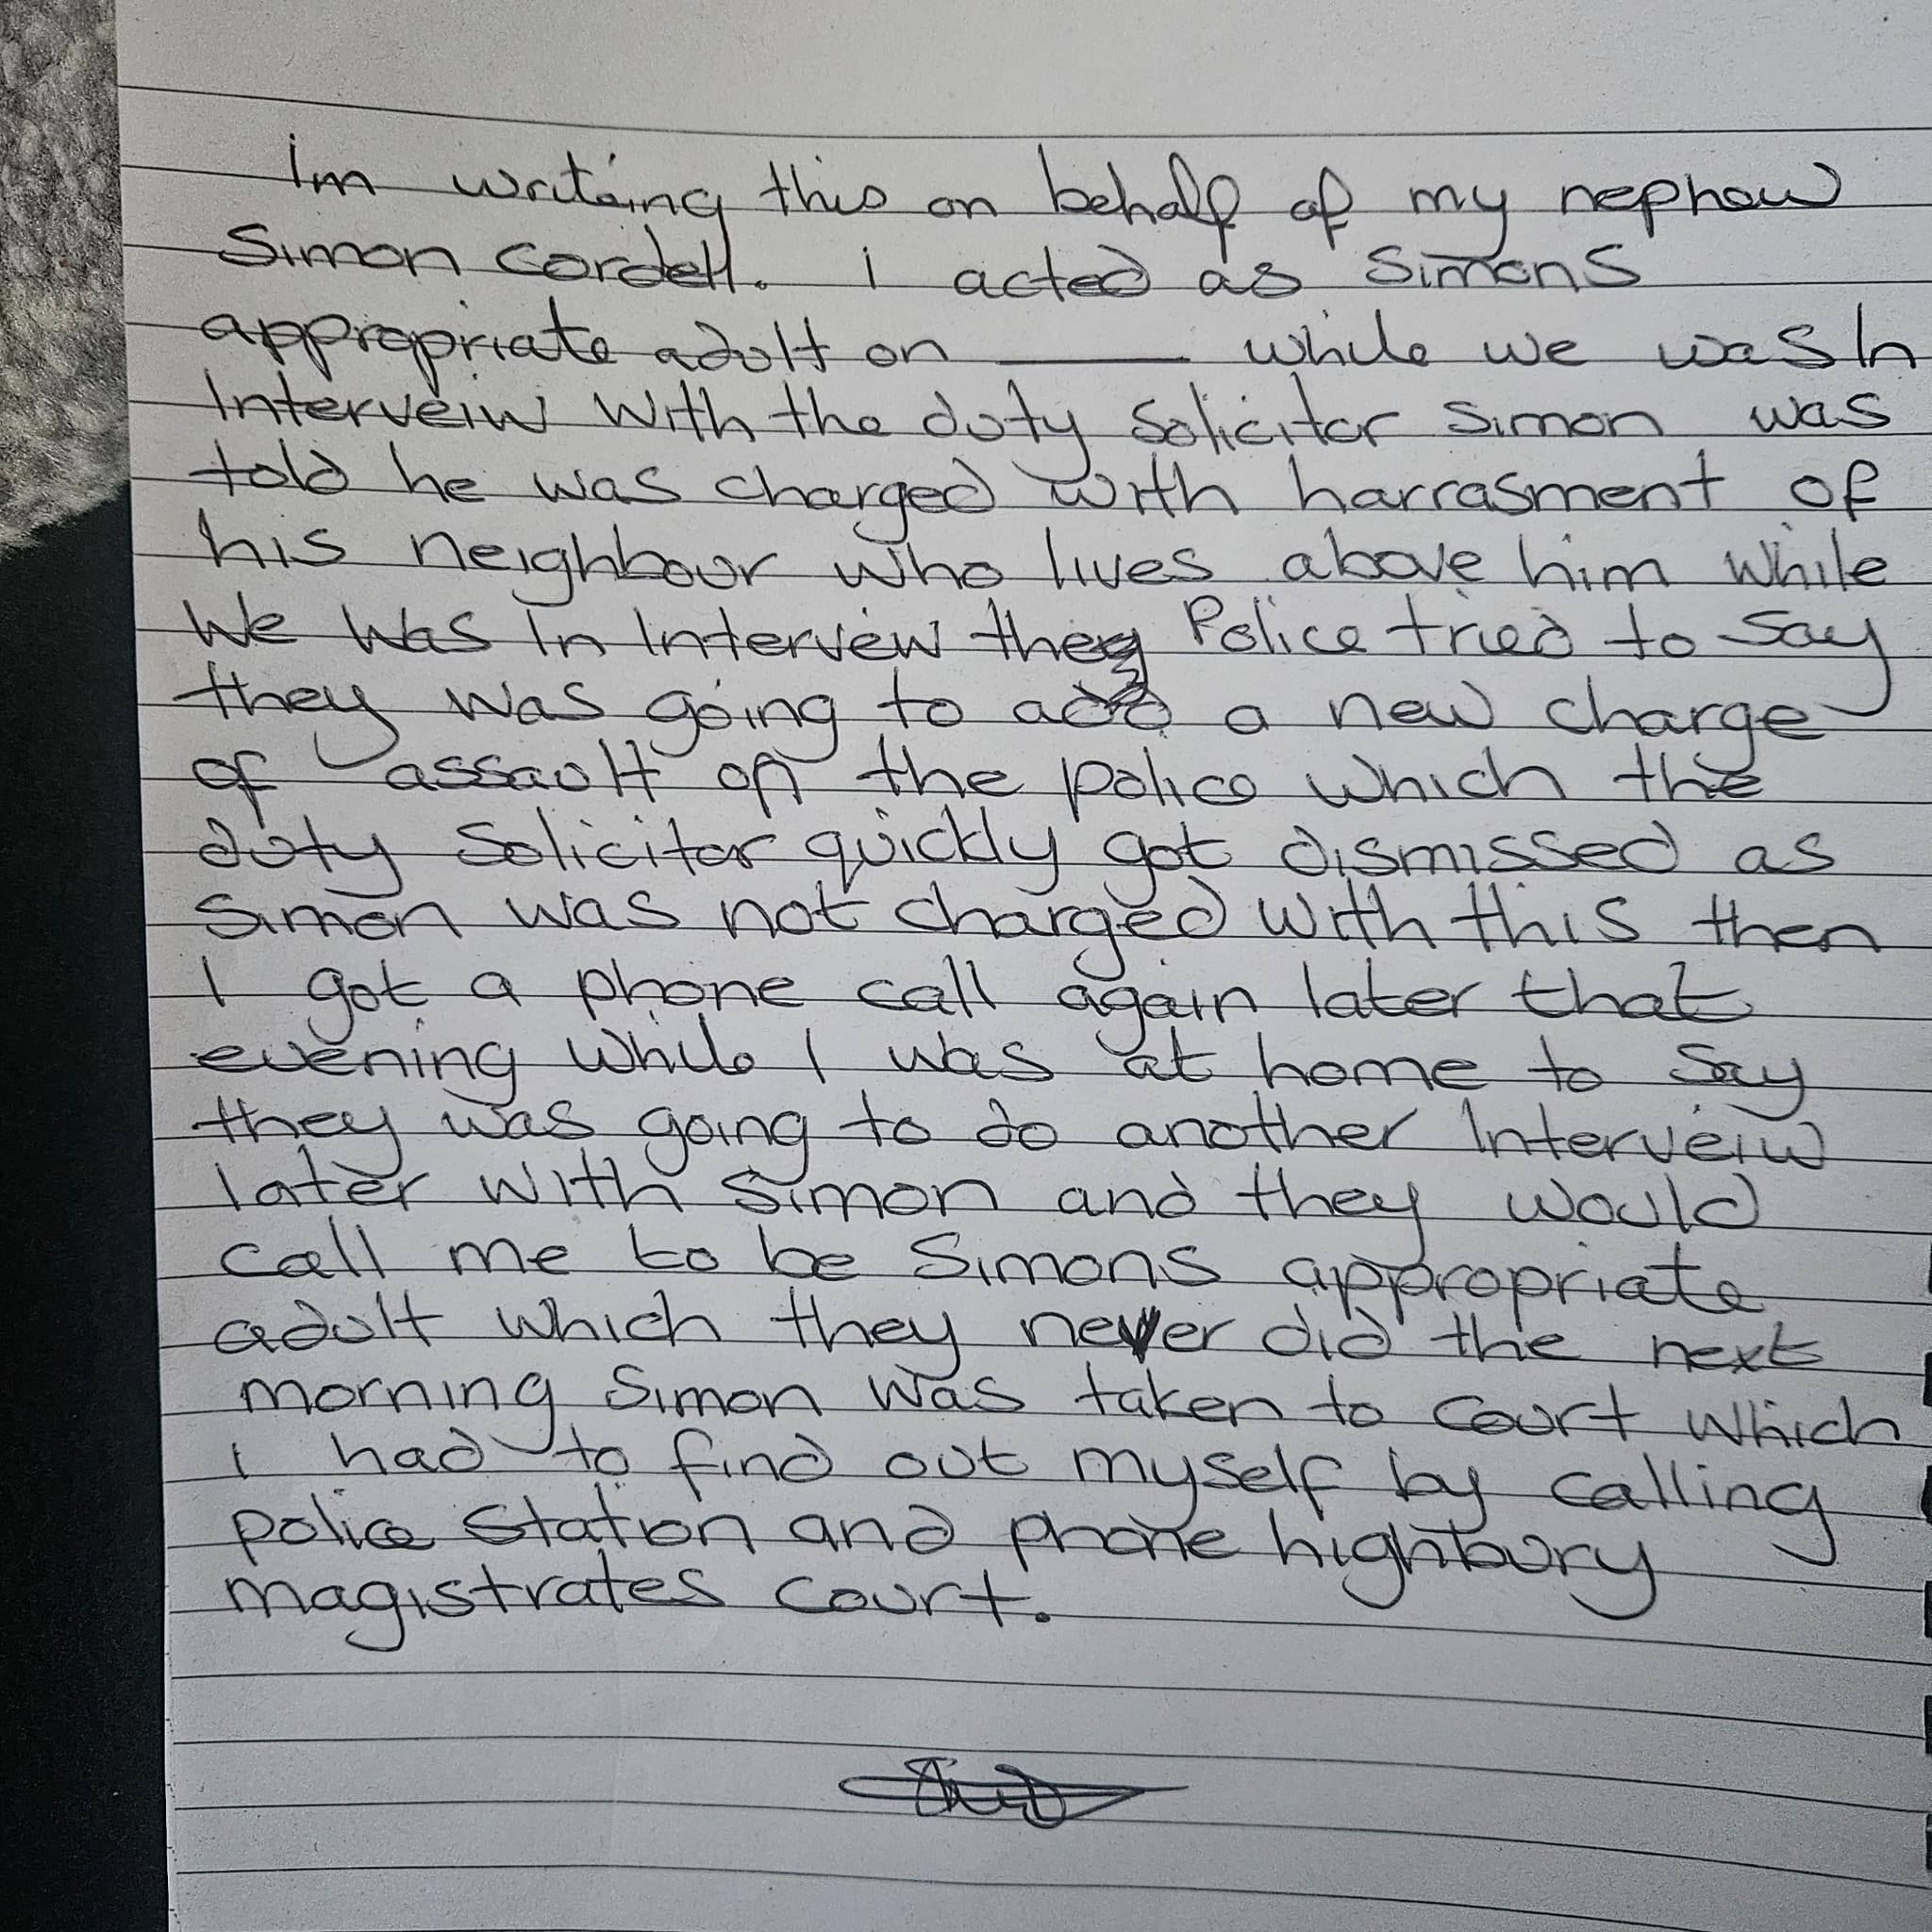 im writeing this on behalf of my nephow
Simon Cordell. i acted as Simons
appropriate adult on ______ while we was In
Interveiw With the duty Solicitor Simon was
told he was charged with harrasment of
his neighbour who lives above him while
We Was In Interveiw they Police tried to Say
they was going to add a new charge
of assault on the police which the
duty Solicitor quickly got dismissed as
Simon was not charged with this then
I got a phone call again later that
evening while I was at home to Say
they was going to do another Interveiw
later with Simon and they would
call me to be Simons appropriate
adult which they never did the next
morning Simon was taken to Court which
i had to find out myself by calling
police Station and phone highbury
magistrates court.